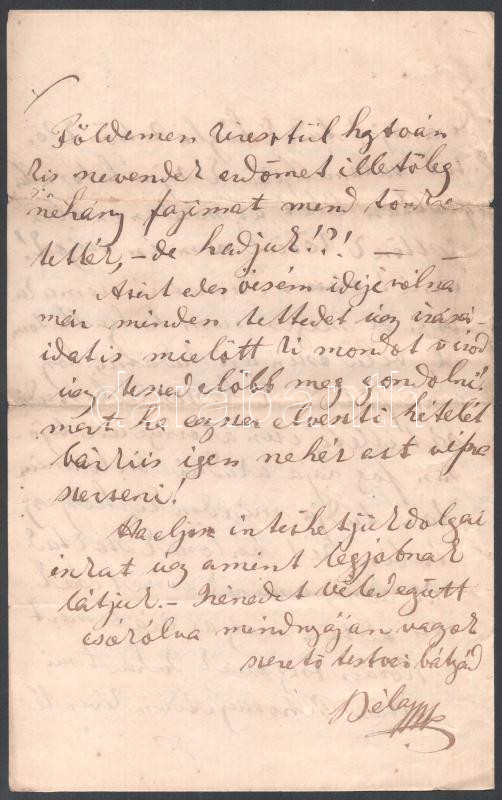 Földemen keresztül hatván
kis nevendek erdőmet illetőleg
néhány fajimat mend tönkre
tették, – de hadjuk!?! – –
Asért edes öcsém ideje vólna
már minden tettedet úgy irásai-
idat is mielőtt ki mondot v írod
úgy tenned előbb meg gondolni.
mert ha egyszer elveszti hitelét
bárkiis igen nehéz ast vissza
szerseni!
Ha eljön intéshetjük dolgai
inkat úgy amint legjobnak
látjuk. – Ménedet véled együtt
csókólva mindnyáján vagyok
szerető testvér bátyád
Béla
darabanth